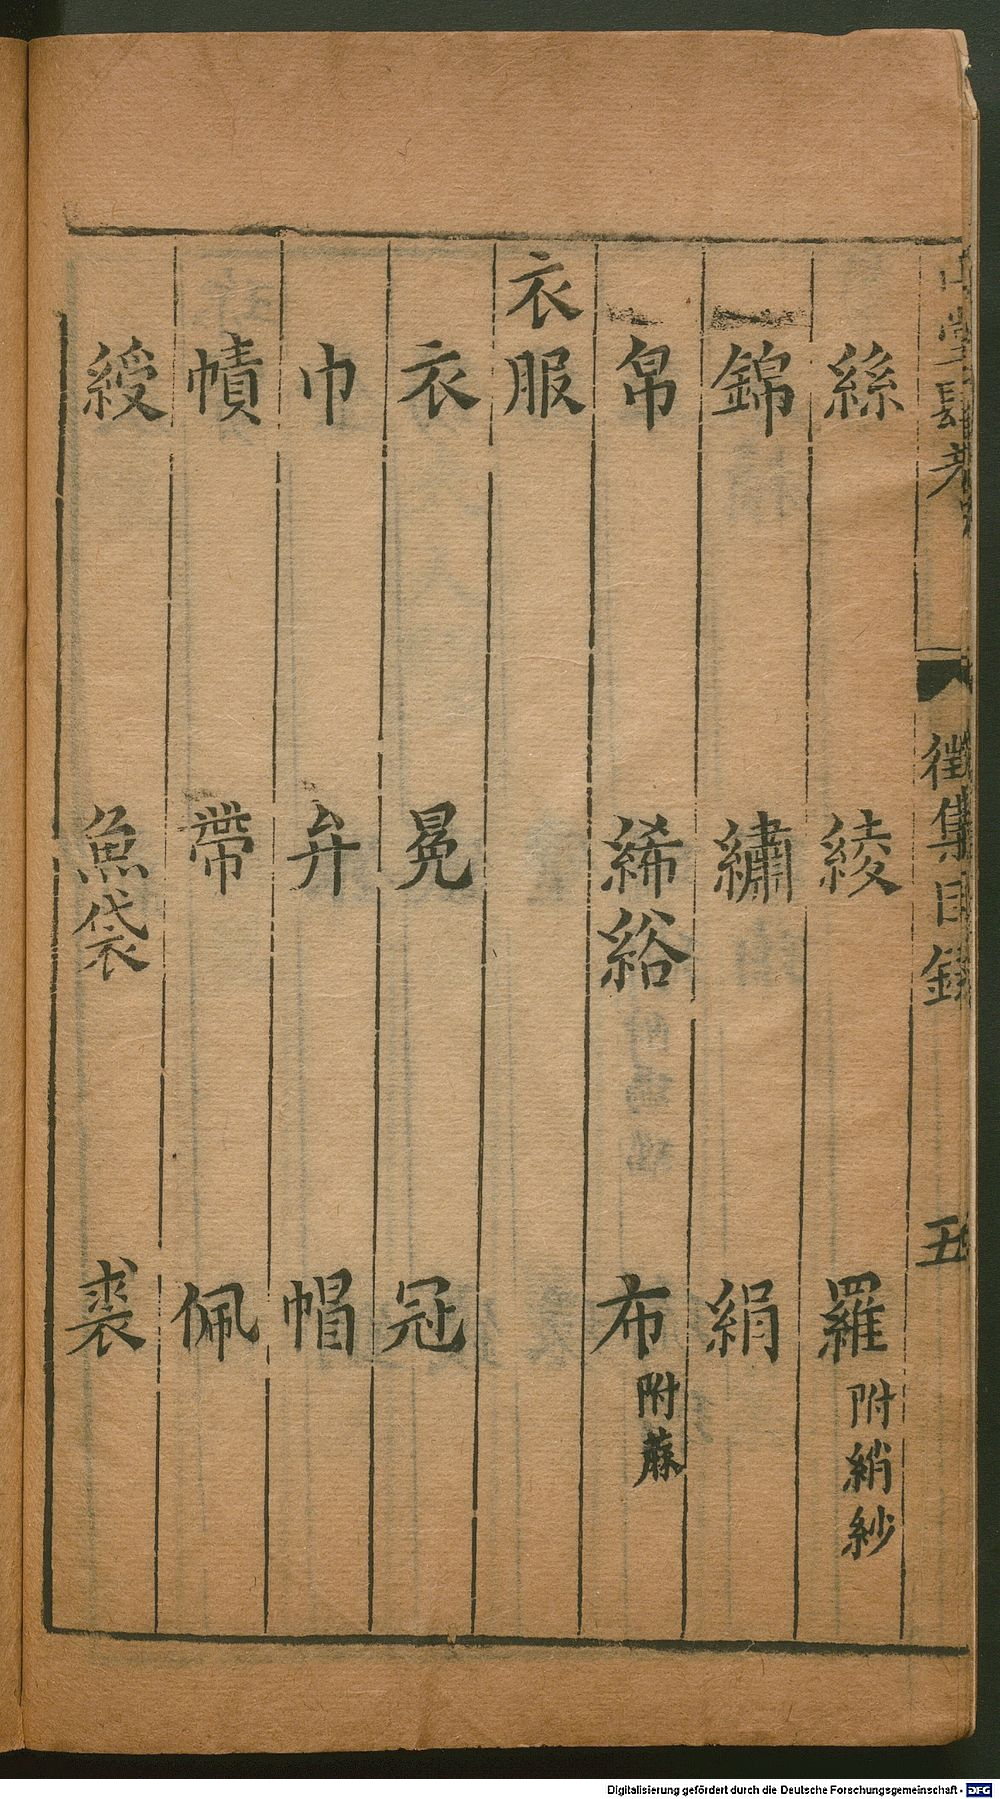 山堂肆考
徵集目錄
五
絲 綾 羅 附綃紗
錦 繡 絹
帛 絺綌 布 附蔴
衣服
衣 冕 冠
巾 弁 帽
幘 帶 佩
綬 魚袋 裘
Digitalisierung gefördert durch die Deutsche Forschungsgemeinschaft - DFG